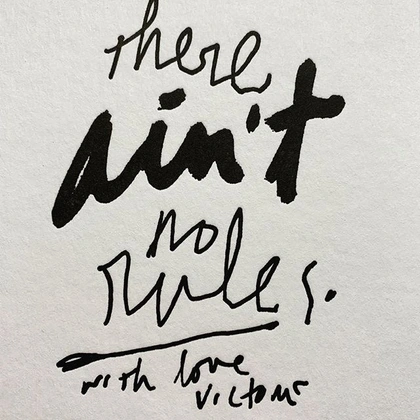 there
ain't
no
rules.
with love
Victoire